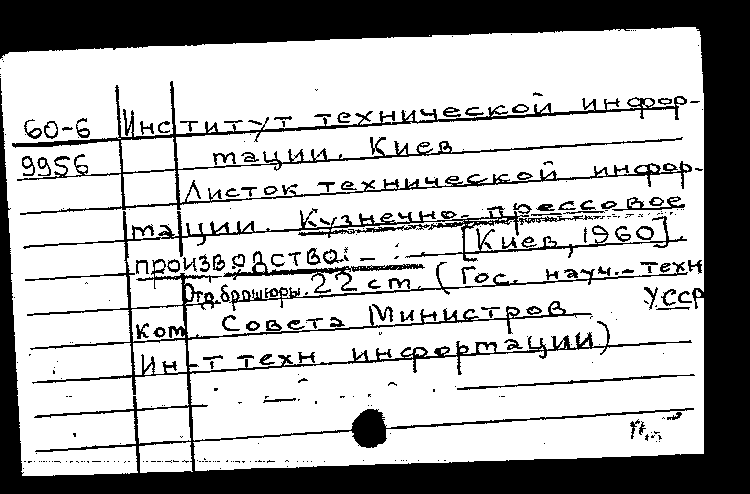 60-6 Институт технической инфор-
9956 тации. Киев
Листок технической инфор-
тации. Кузнечно-прессовое
производство.
[Киев, 1960].
Отд. брошюры. 22 ст. (Гос. науч.-техн
ком. Совета Министров УССР
Ин-т техн. информтации)